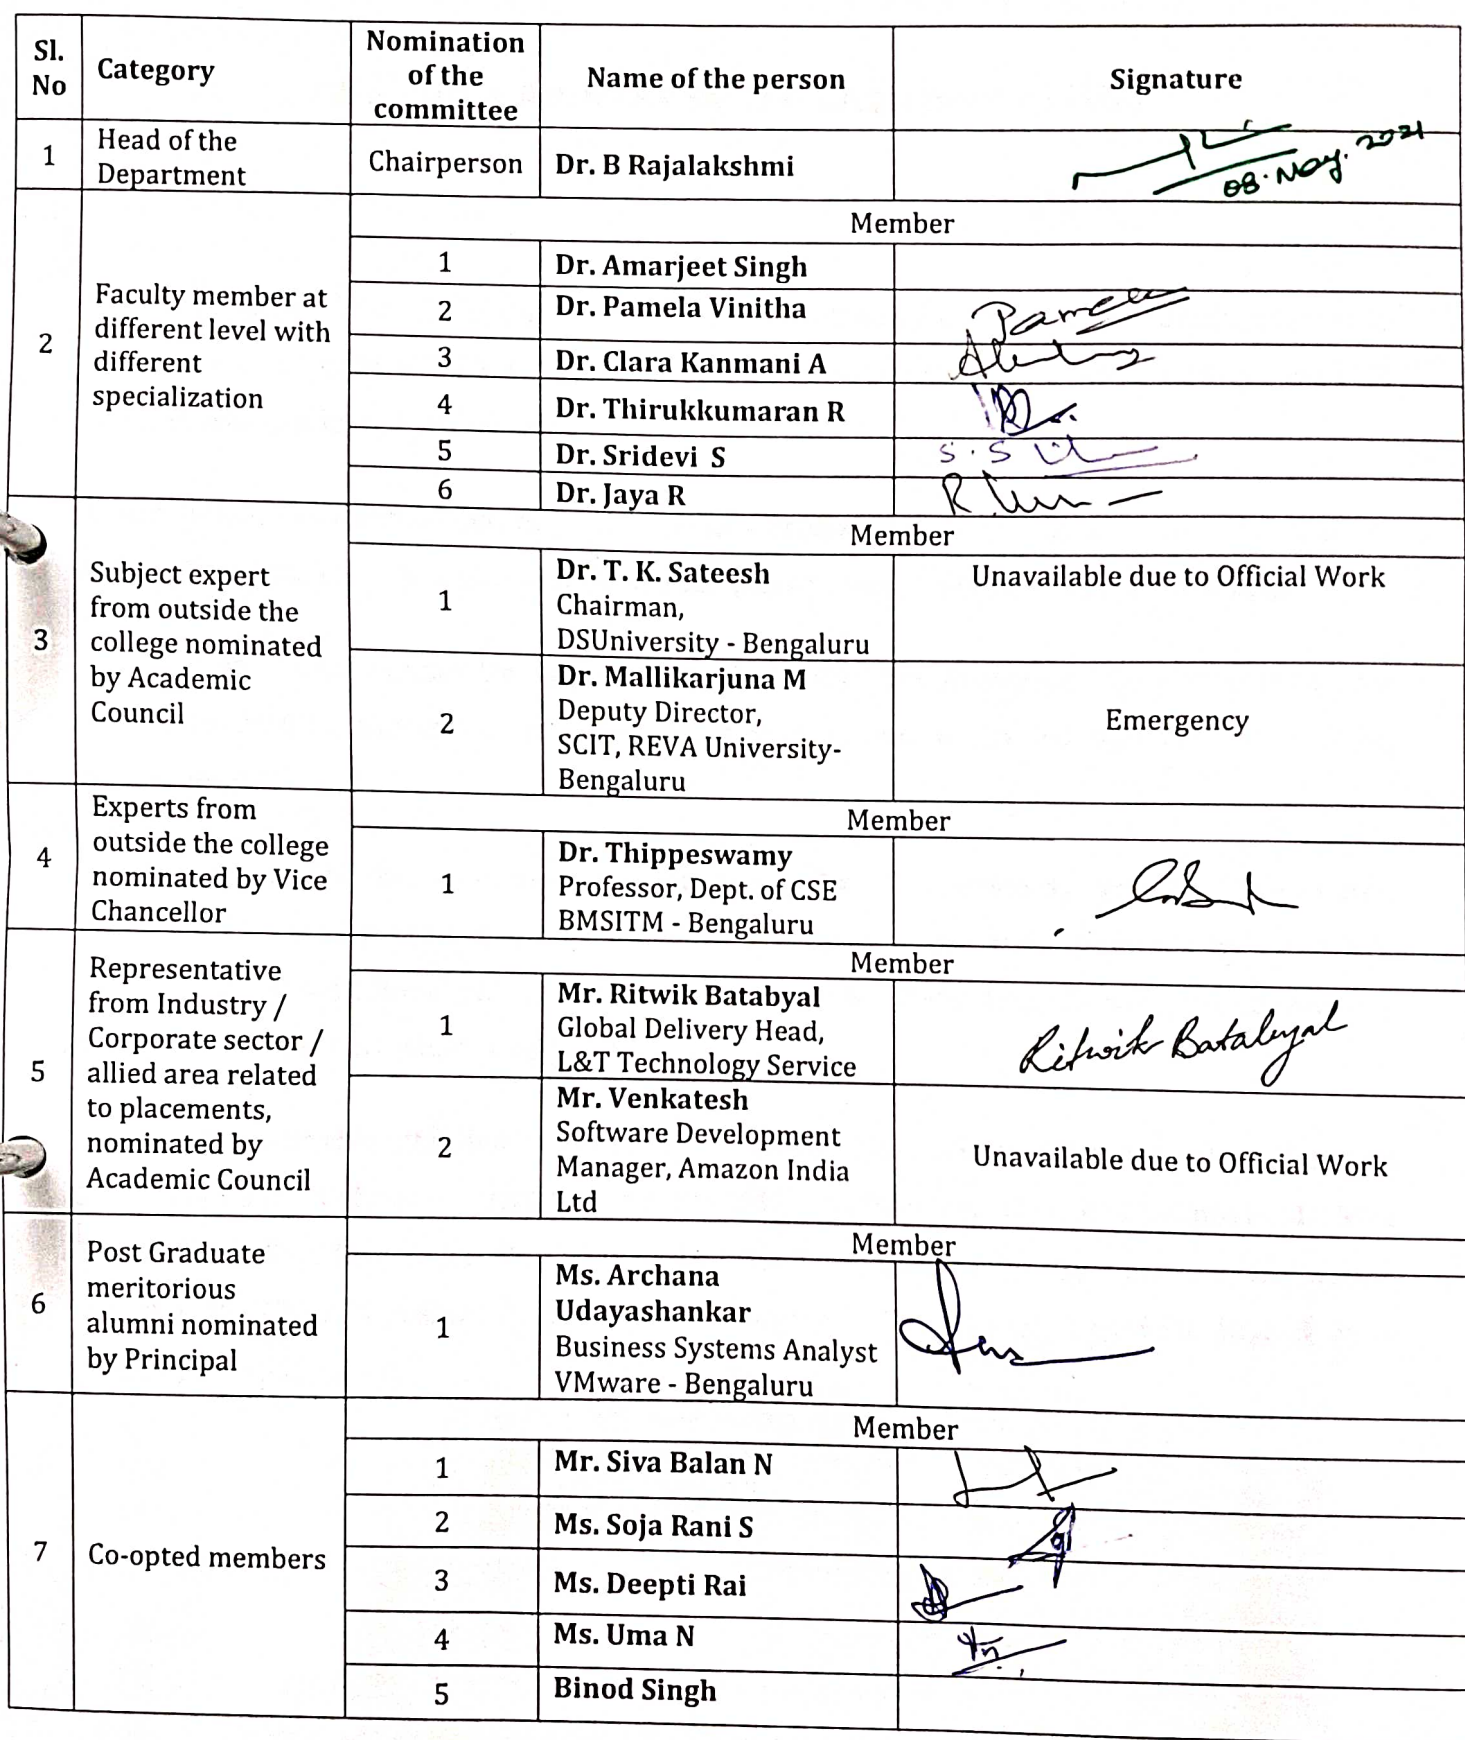 Sl.
No
Category
Nomination
of the
committee
Name of the person
Signature
1
Head of the
Department
Chairperson
Dr. B Rajalakshmi
08. May. 2021
2
Faculty member at
different level with
different
specialization
Member
1
Dr. Amarjeet Singh
2
Dr. Pamela Vinitha
3
Dr. Clara Kanmani A
4
Dr. Thirukkumaran R
5
Dr. Sridevi S
S. S
6
Dr. Jaya R
3
Subject expert
from outside the
college nominated
by Academic
Council
Member
1
Dr. T. K. Sateesh
Chairman,
DSUniversity - Bengaluru
Unavailable due to Official Work
2
Dr. Mallikarjuna M
Deputy Director,
SCIT, REVA University-
Bengaluru
Emergency
4
Experts from
outside the college
nominated by Vice
Chancellor
Member
1
Dr. Thippeswamy
Professor, Dept. of CSE
BMSITM - Bengaluru
5
Representative
from Industry /
Corporate sector /
allied area related
to placements,
nominated by
Academic Council
Member
1
Mr. Ritwik Batabyal
Global Delivery Head,
L&T Technology Service
Ritwik Batabyal
2
Mr. Venkatesh
Software Development
Manager, Amazon India
Ltd
Unavailable due to Official Work
6
Post Graduate
meritorious
alumni nominated
by Principal
Member
1
Ms. Archana
Udayashankar
Business Systems Analyst
VMware - Bengaluru
7
Co-opted members
Member
1
Mr. Siva Balan N
2
Ms. Soja Rani S
3
Ms. Deepti Rai
4
Ms. Uma N
5
Binod Singh